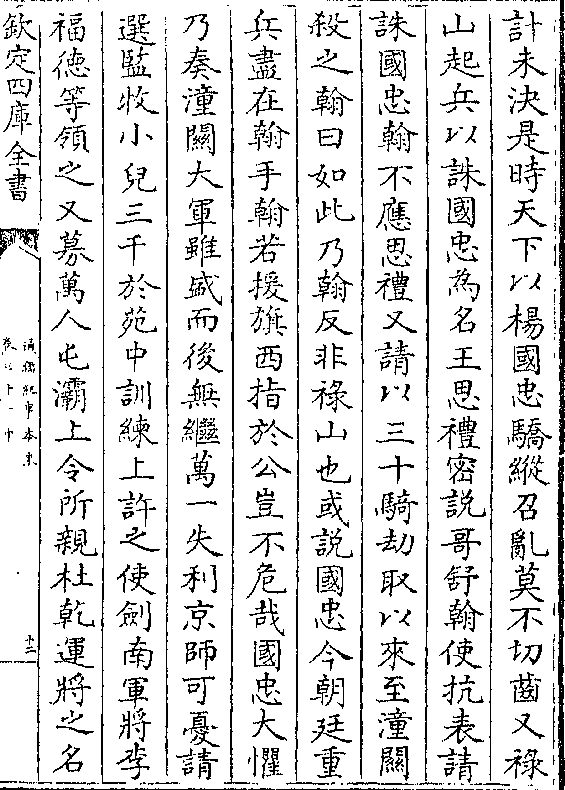 計未決是時天下以楊國忠驕縱召亂莫不切齒又祿
山起兵以誅國忠為名王思禮密説哥舒翰使抗表請
誅國忠翰不應思禮又請以三十騎劫取以來至潼關
殺之翰曰如此乃翰反非祿山也或説國忠今朝廷重
兵盡在翰手翰若援旗西指於公豈不危哉國忠大懼
乃奏潼關大軍雖盛而後無繼萬一失利京師可憂請
選監牧小兒三千於苑中訓練上許之使劍南軍將李
福德等領之又募萬人屯灞上令所親杜乾運將之名
欽定四庫全書
通鑑紀事本末
十二